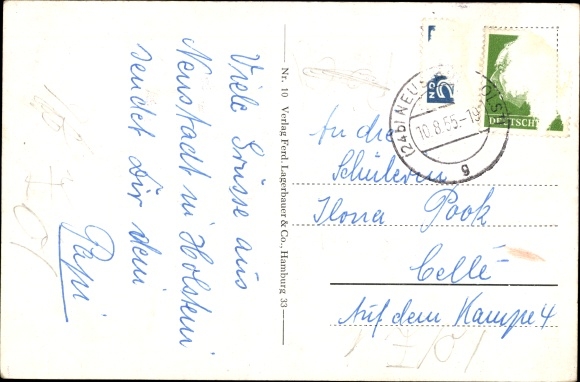 Viele Grüsse aus
Neustadt in Holstein
sendet Dir dein
Papi
Nr. 10 Verlag Ferd. Lagerbauer & Co., Hamburg 33
(24b) NEU
10.8.55.-19
g
DEUTSCH
An die
Schülerin
Ilona Pook
Celle
Auf dem Kampe 4